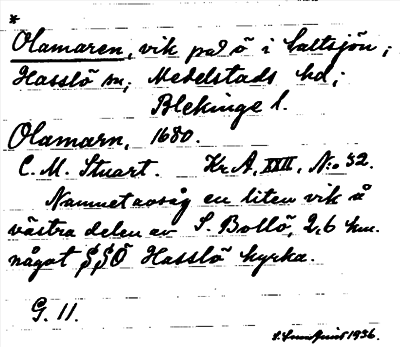 *
Ölamaren, vik på ö i Saltsjön;
Hasslö sn; Medelstads hd;
Blekinge l.
Ölamarn, 1680.
C. M. Stuart. Kr.A, XXII, N:o 32.
Namnet avsåg en liten vik å
västra delen av S. Bollö, 2,6 km.
något SSÖ Hasslö kyrka.
G. 11.
1936.